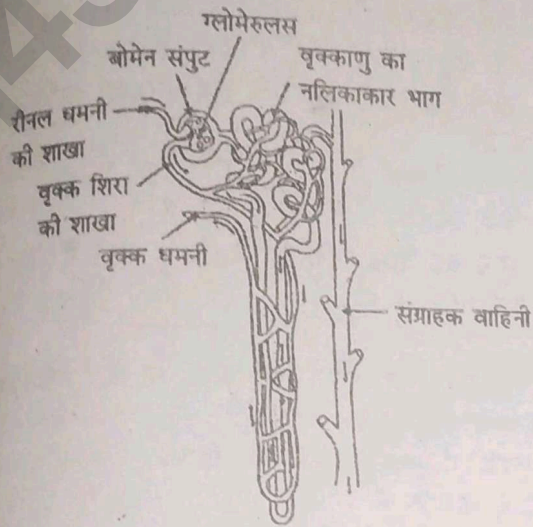 ग्लोमेरुलस
बोमेन संपुट
वृक्काणु का
नलिकाकार भाग
रीनल धमनी
की शाखा
वृक्क शिरा
की शाखा
वृक्क धमनी
संग्राहक वाहिनी